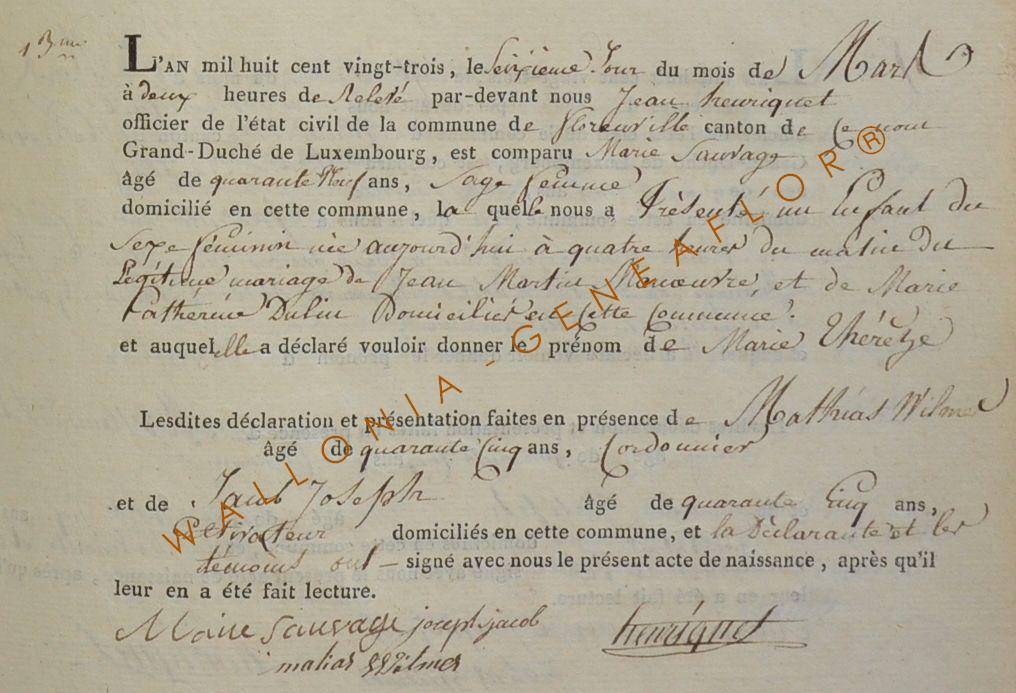 L'AN mil huit cent vingt-trois, le Seixième Jour du mois de Mars
à deux heures de Relevé par-devant nous Jean henriquet
officier de l'état civil de la commune de florenville canton de Ce nom
Grand-Duché de Luxembourg, est comparu Marie Sauvage
âgé de quarante Neuf ans, Sage femme
domicilié en cette commune, la quelle nous a Présenté un Enfant du
Sexe féminin née aujourd'hui à quatre heures du matin du
Légitime mariage de Jean Martin Manœuvre, et de Marie
Cathérine Dulin Domiciliés en Cette Commune.
et auquel elle a déclaré vouloir donner le prénom de Marie Thérèse
Lesdites déclaration et présentation faites en présence de Mathias Wilmes
âgé de quarante Cinq ans, Cordonnier
et de Jacob Joseph âgé de quarante Cinq ans,
Cultivateur domiciliés en cette commune, et la Déclarante et les
témoins ont signé avec nous le présent acte de naissance, après qu'il
leur en a été fait lecture.
Marie Sauvage joseph jacob henriquet
matias Wilmes
WALLONIA - GENEAFLOR®